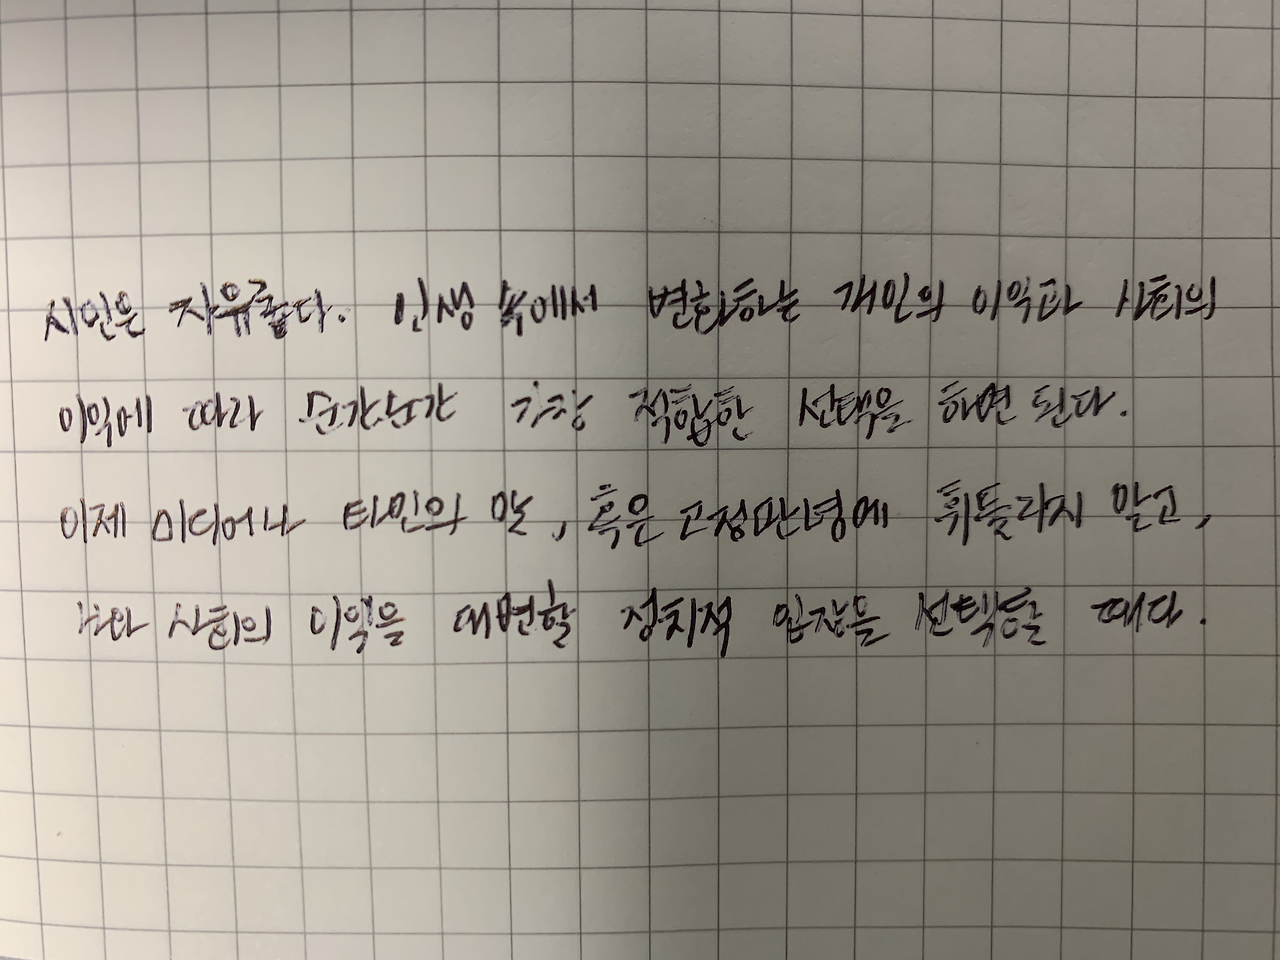 시민은 자유롭다. 인생 속에서 변화하는 개인의 이익과 사회의
이익에 따라 순간순간 가장 적합한 선택을 하면 된다.
이제 미디어나 타인의 말, 혹은 고정관념에 휘둘리지 말고,
나와 사회의 이익을 대변할 정치적 입장을 선택할 때다.